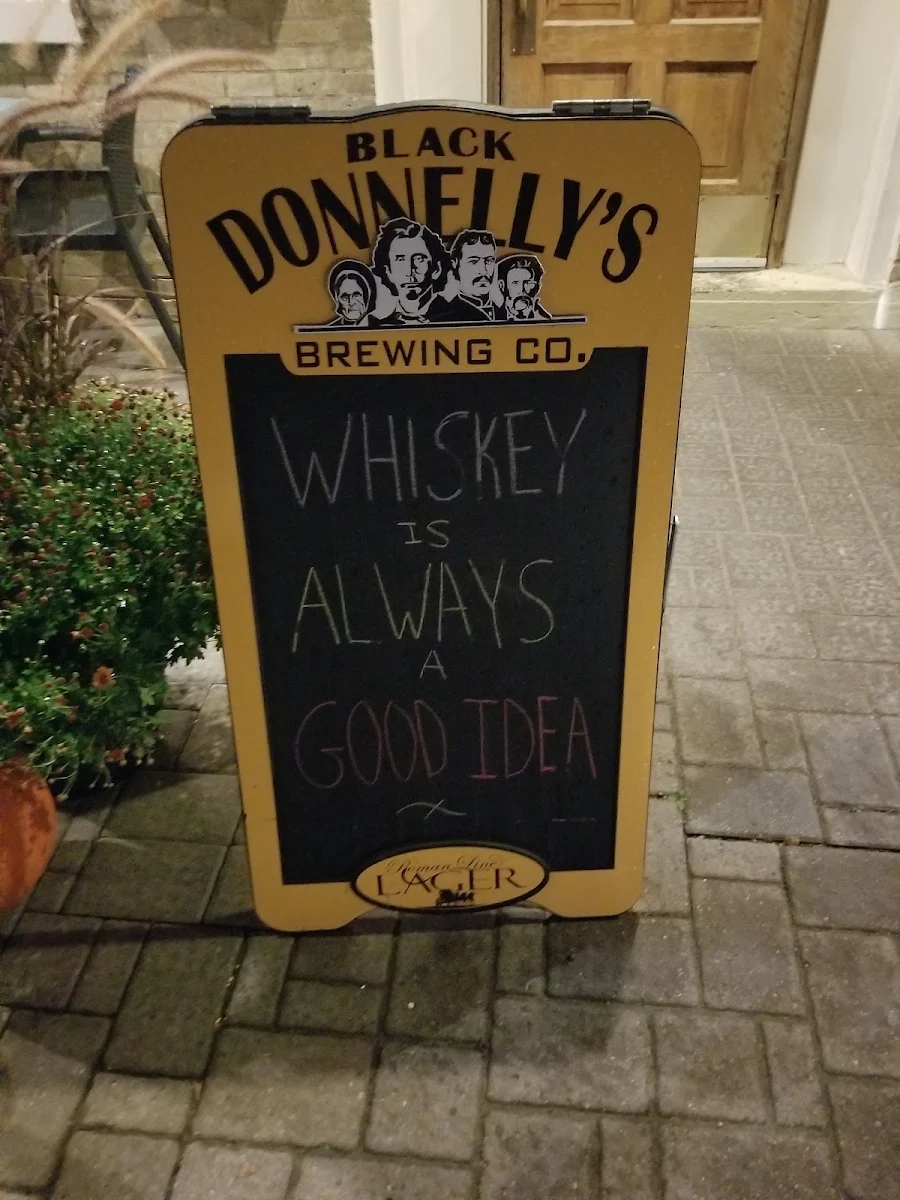 BLACK
DONNELLY'S
BREWING CO.
WHISKEY
IS
ALWAYS
A
GOOD IDEA
Roman Line
LAGER